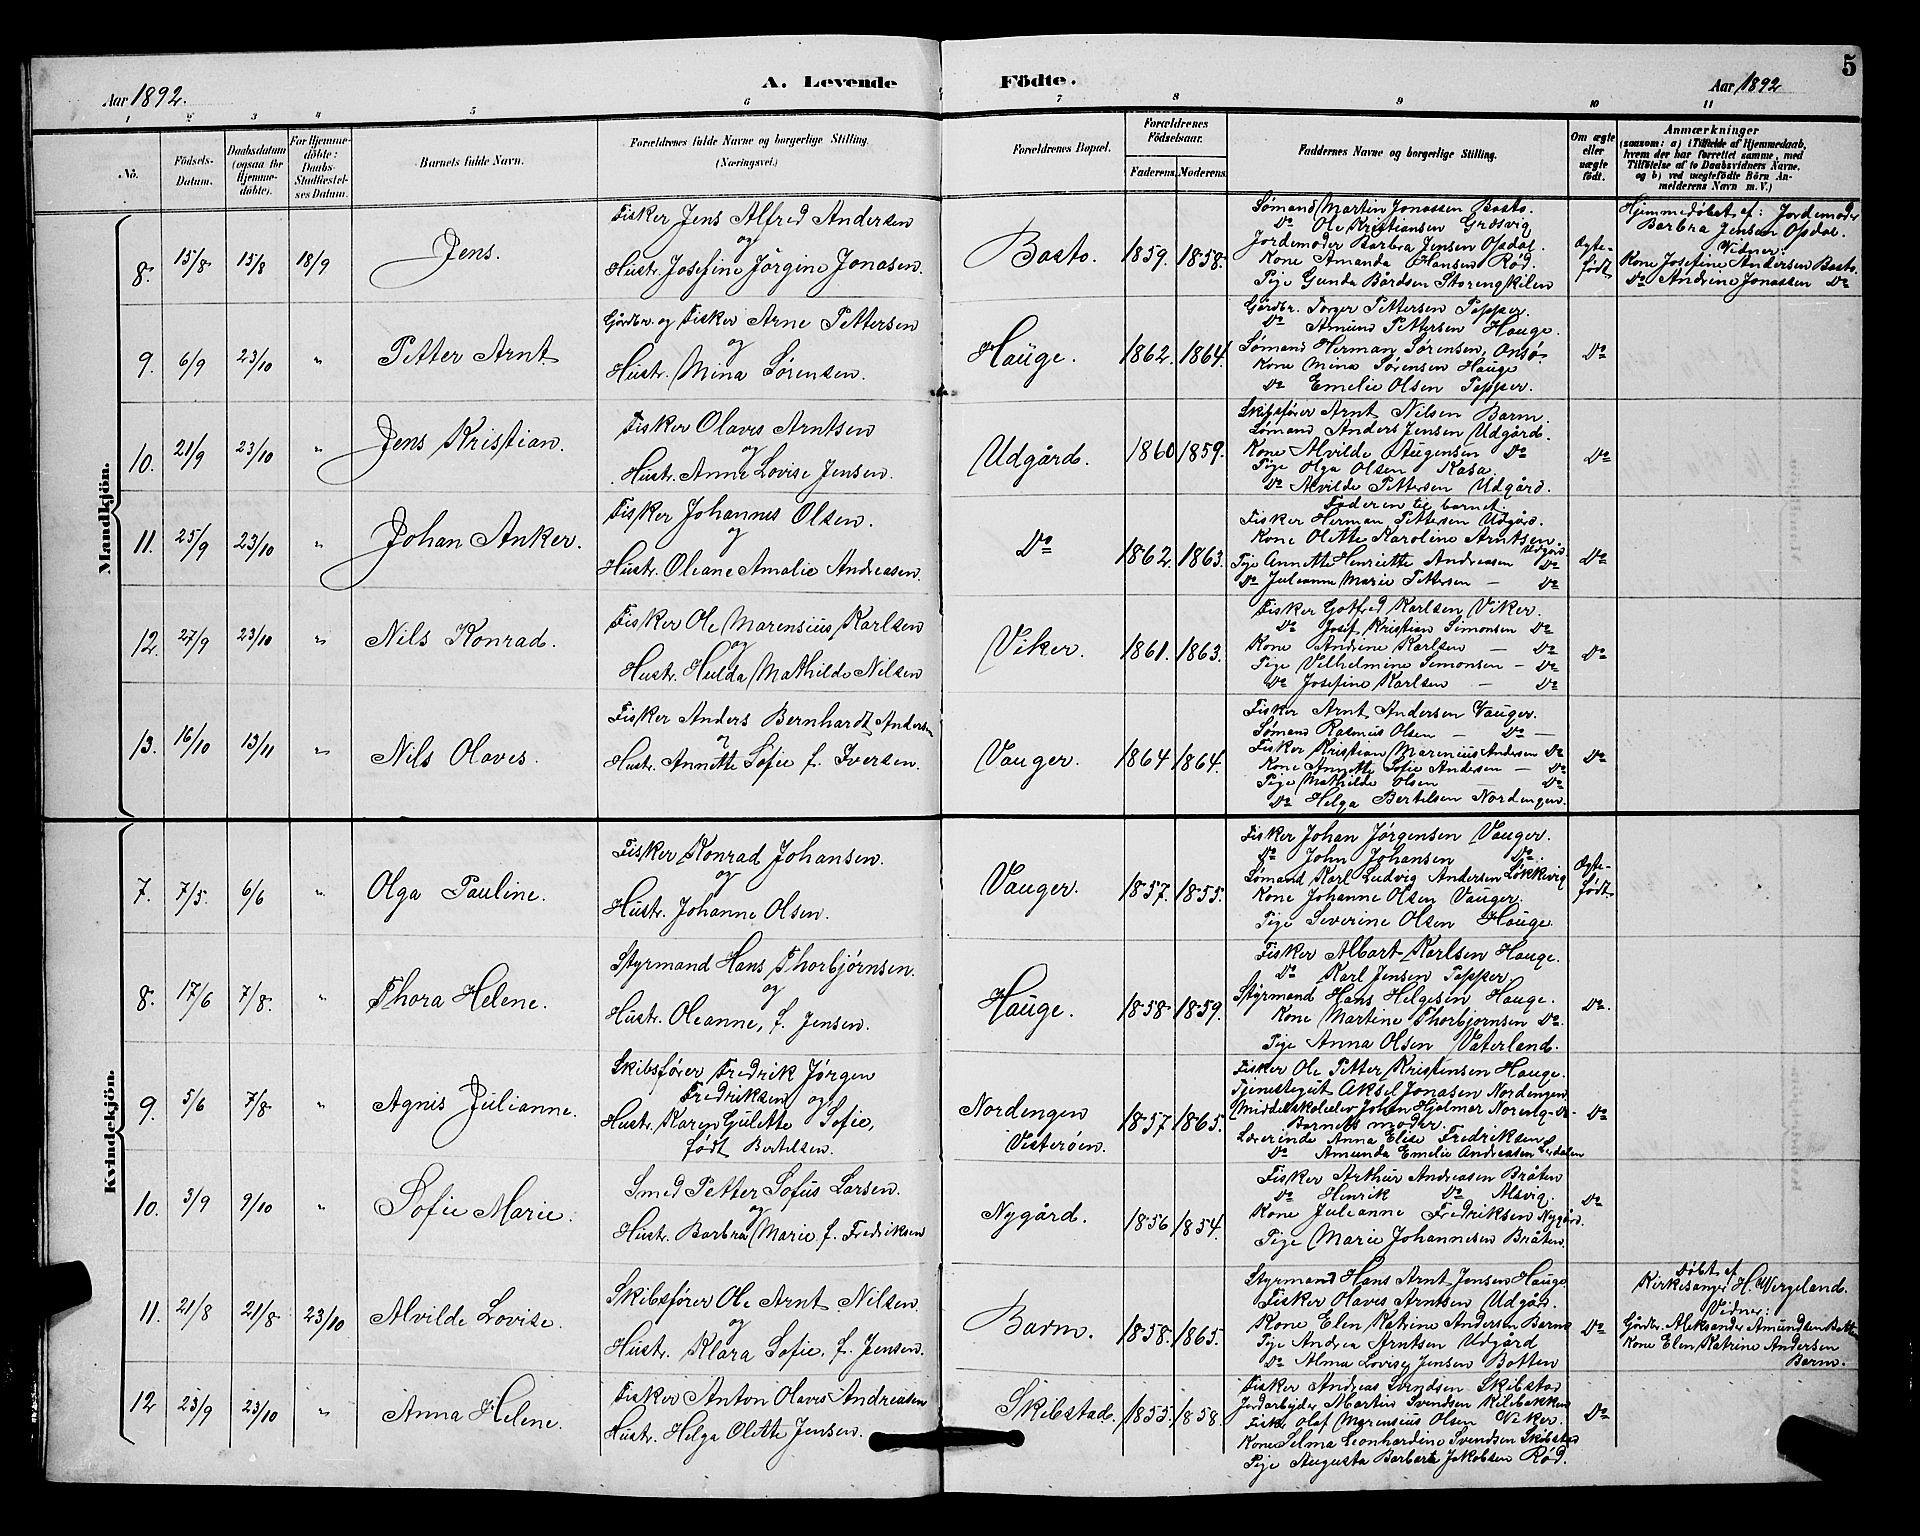 5
A. Levende Födte.
Aar 1892.
Aar 1892
1 2 3 4 5 6 7 8 9 10 11
No.
Födsels-Datum.
Daabsdatum (ogsaa for Hjemmedöbte).
For Hjemmedöbte: Daabs-Stadfæstelses Datum.
Barnets fulde Navn.
Forældrenes fulde Navne og borgerlige Stilling. (Næringsvei.)
Forældrenes Bopæl.
Forældrenes Födselsaar.
Faderens. Moderens.
Faddernes Navne og borgerlige Stilling.
Om ægte eller uægte födt.
Anmærkninger
(saasom: a) i Tilfælde af Hjemmedaab, hvem der har forrettet samme, med Tilföielse af to Daabsvidners Navne, og b) ved uægtefödte Börn Anmelderens Navn m. V.)
Mandkjön.
8. 15/8 15/8 18/9 Jens.
Fisker Jens Alfred Andersen
og
Hustr. Josefine Jörgine Jonasen.
Basto. 1859. 1858.
Sømand Martin Jonassen Basto.
Do Ole Kristiansen Grøsvig
Jordemoder Barbra Jensen Opdal.
Kone Amanda Hansen Rød.
Pige Gunda Bårdsen Storengkilen
Ægtefødt
Hjemmedøbet af: Jordemoder
Barbra Jensen Opdal.
Vidner:
Kone Josefine Andersen Basto.
Do Andrine Jonassen Do
9. 6/9 23/10 " Petter Arnt.
Gårdbr. og Fisker Arne Pettersen
og
Hustr. Mina Sørensen.
Hauge. 1862. 1864.
Gårdbr. Torger Pettersen Papper.
Do Amund Pettersen Hauge.
Sømand Herman Sørensen, Onsø.
Kone Mina Sørensen Hauge
Do Emelie Olsen Papper.
Do
10. 21/9 23/10 " Jens Kristian.
Fisker Olaves Arntsen
og
Hustr. Anne Lovise Jensen.
Udgård. 1860 1859.
Skibsfører Arnt Nilsen Barm.
Sømand Anders Jensen Udgård.
Kone Alvilde Augensen Do
Pige Olga Olsen Kasa.
Do Alvilde Pettersen Udgård.
Do
11. 25/9 23/10 " Johan Anker.
Fisker Johannes Olsen.
og
Hustr. Oleane Amalie Andreasen.
Do 1862. 1863.
Faderen til barnet.
Fisker Herman Pettersen Udgård.
Kone Olette Karoline Arntsen. Udgård
Pige Annette Henriette Andreasen Do
Do Julianne Marie Pettersen – Do
Do
12. 27/9 23/10 " Nils Konrad.
Fisker Ole Marensius Karlsen
og
Hustr. Hulda Mathilde Nilsen
Viker. 1861. 1863.
Fisker Gotfred Karlsen Viker.
Do Josef Kristian Simonsen Do
Kone Andrine Karlsen – Do
Pige Vilhelmine Simonsen – Do
Do Josefine Karlsen – Do
Do
13. 16/10 13/11 " Nils Olaves.
Fisker Anders Bernhardt Andersen
og
Hustr. Annette Sofie f. Iversen.
Vauger. 1864 1864.
Fisker Arnt Andersen Vauger.
Sømand Rasmus Olsen – Do –
Fisker Kristian Marenius Andersen Do
Kone Annette Sofie Andersen – Do
Pige Mathilde Olsen Do
Do Helga Bertelsen Nordengen.
Do
Kvindekjön.
7. 7/5 6/6 " Olga Pauline.
Fisker Konrad Johansen.
og
Hustr. Johanne Olsen.
Vauger. 1857. 1855.
Fisker Johan Jørgensen Vauger.
Do John Johansen Do.
Sømand Karl Ludvig Andersen Løkkevig
Kone Johanne Olsen Vauger.
Pige Severine Olsen Hauge.
Ægtefødt
8. 17/6 7/8. " Thora Helene.
Styrmand Hans Thorbjørnsen.
og
Hustr. Oleanne, f. Jensen.
Hauge. 1858 1859.
Fisker Albart Karlsen Hauge.
Do Karl Jensen Papper.
Styrmand Hans Helgesen Hauge.
Kone Martine Thorbjørnsen Do.
Pige Anna Olsen Vaterland.
Do.
9. 5/6 7/8 " Agnis Julianne.
Skibsfører Fredrik Jørgen
Fredriksen og
Hustr. Karen Gulette Sofie,
født Bertelsen.
Nordengen
Vesterøen. 1857 1865.
Fisker Ole Petter Kristensen Hauge.
Tjenestegut Aksel Jonasen Nordengen
Middelskoleelev Johan Hjalmar Norenq - Do -
Barnets moder.
Lærerinde Anna Elise Fredriksen
Do Amunda Emelie Andreasen Lerdalen
Do
10. 3/9 9/10 " Sofie Marie.
Smed Petter Sofus Larsen.
og
Hustr. Barbra Marie f. Fredriksen
Nygård. 1856 1854.
Fisker Arthur Andreasen Bråten
Do Henrik Do Alsvig.
Kone Julianne Fredriksen Nygård.
Pige Marie Johannesen Bråten
Do
11. 21/8 21/8 23/10 Alvilde Lovise.
Skibsfører Ole Arnt Nilsen.
og
Hustr. Klara Sofie, f. Jensen.
Barm. 1858. 1865.
Styrmand Hans Arnt Jensen Hauge
Fisker Olaves Arntsen Udgård.
Kone Elen Katrine Andersen Barm
Pige Andrea Arntsen Udgård
Do Alma Lovise Jensen Botten
Do
Døbt af
Kirkesanger H. Wergeland.
Vidner:
Gårdbr. Aleksander Amundsen Botten
Kone Elen Katrine Andersen
Barm.
12 23/9 23/10 " Anna Helene.
Fisker Anton Olaves Andreasen
Hustr. Helga Olette Jensen.
Skibstad. 1855. 1858.
Fisker Andreas Svendsen Skibstad
Jordarbejder Martin Svendsen Kilebakken
Fisker Olaf Marensius Olsen Viker.
Kone Selma Leonhardine Svendsen Skibstad
Pige Augusta Barbara Jakobsen Rød.
Do